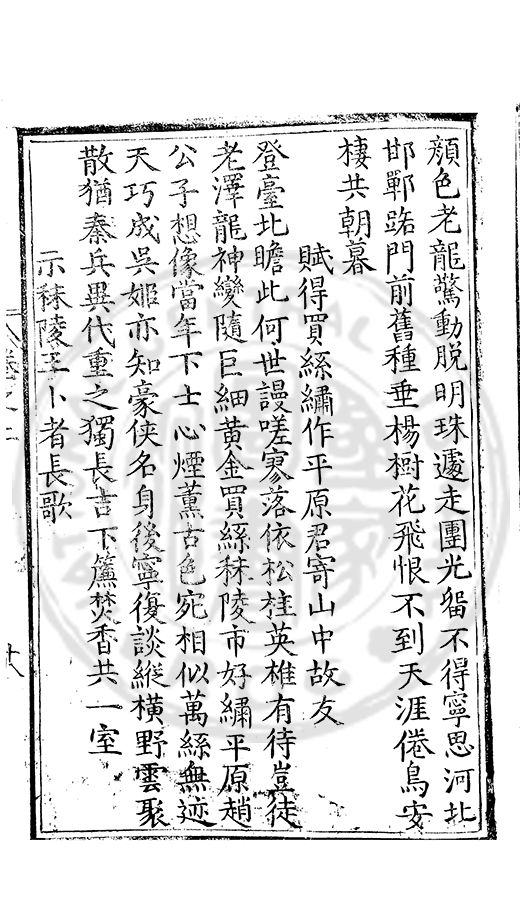 顏色老龍驚動脫明珠遽走團光留不得寧思河北
邯鄲路門前舊種垂楊樹花飛恨不到天涯倦鳥安
棲共朝暮
賦得買絲繡作平原君寄山中故友
登臺北瞻此何世謾嗟寥落依松桂英雄有待豈徒
老澤龍神變隨巨細黃金買絲秣陵市好繡平原趙
公子想像當年下士心煙薰古色宛相似萬絲無迹
天巧成吳姬亦知豪俠名身後寧復談縱橫野雲聚
散猶秦兵異代重之獨長吉下簾焚香共一室
示秣陵王卜者長歌